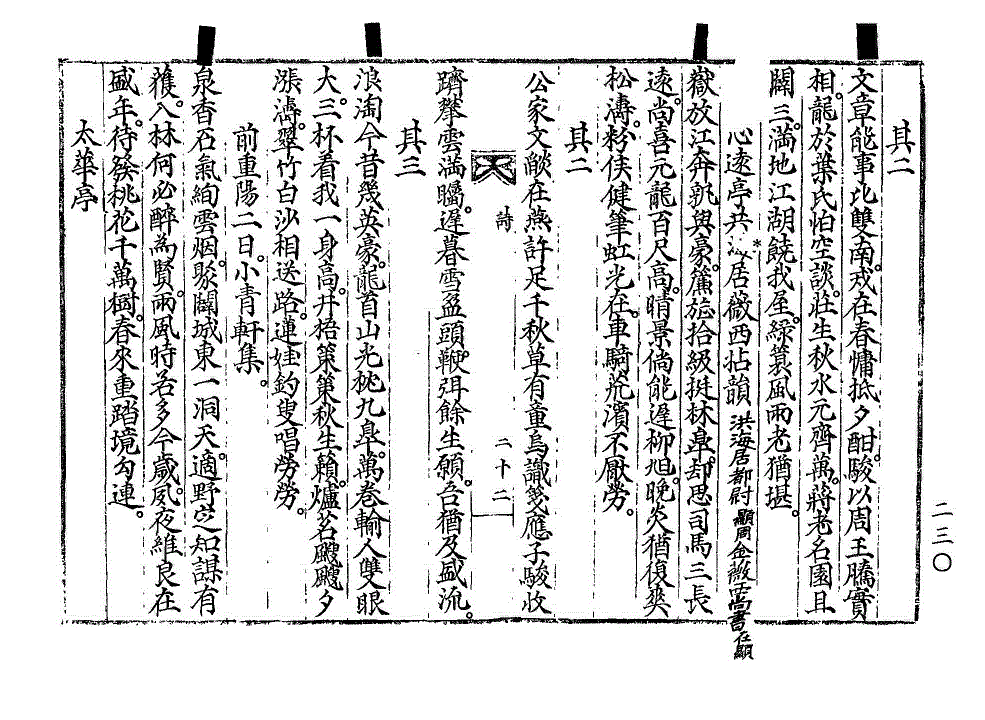 其二
文章能事比雙南。我在春慵抵夕酣。駿以周王驕實
相。龍於葉氏怕空談。莊生秋水元齊萬。蔣老名園且
闢三。滿地江湖饒我屋。綠蓑風雨老猶堪。
心逺亭共海居薇西拈韻 洪海居都尉顯周金薇西尚書在顯
嶽放江奔孰與豪。簾旌拾級挺林臯。却思司馬三長
逺。尚喜元龍百尺高。晴景倘能遲柳旭。晚炎猶復爽
松濤。粉侯健筆虹光在。車騎荒濱不厭勞。
其二
公家文酸在燕許足千秋草有童烏識。箋應子駿收
詩
二十二
躋攀雲滿矚。遲暮雪盈頭。鞭弭餘生願。吾猶及盛流。
其三
浪淘今昔幾英豪。龍首山光挑九臯。萬卷輸人雙眼
大。三杯看我一身高。井梧策策秋生籟。爐茗颼颼夕
漲濤。翠竹白沙相送路。蓮娃釣叟唱勞勞。
前重陽二日。小青軒集。
泉香石氣絢雲烟。聚闢城東一洞天。適野豈知謀有
獲。入林何必醉爲賢。兩風時若多今歲。夙夜維良在
盛年。待發桃花千萬樹。春來重踏境勾連。
太華亭
二三〇